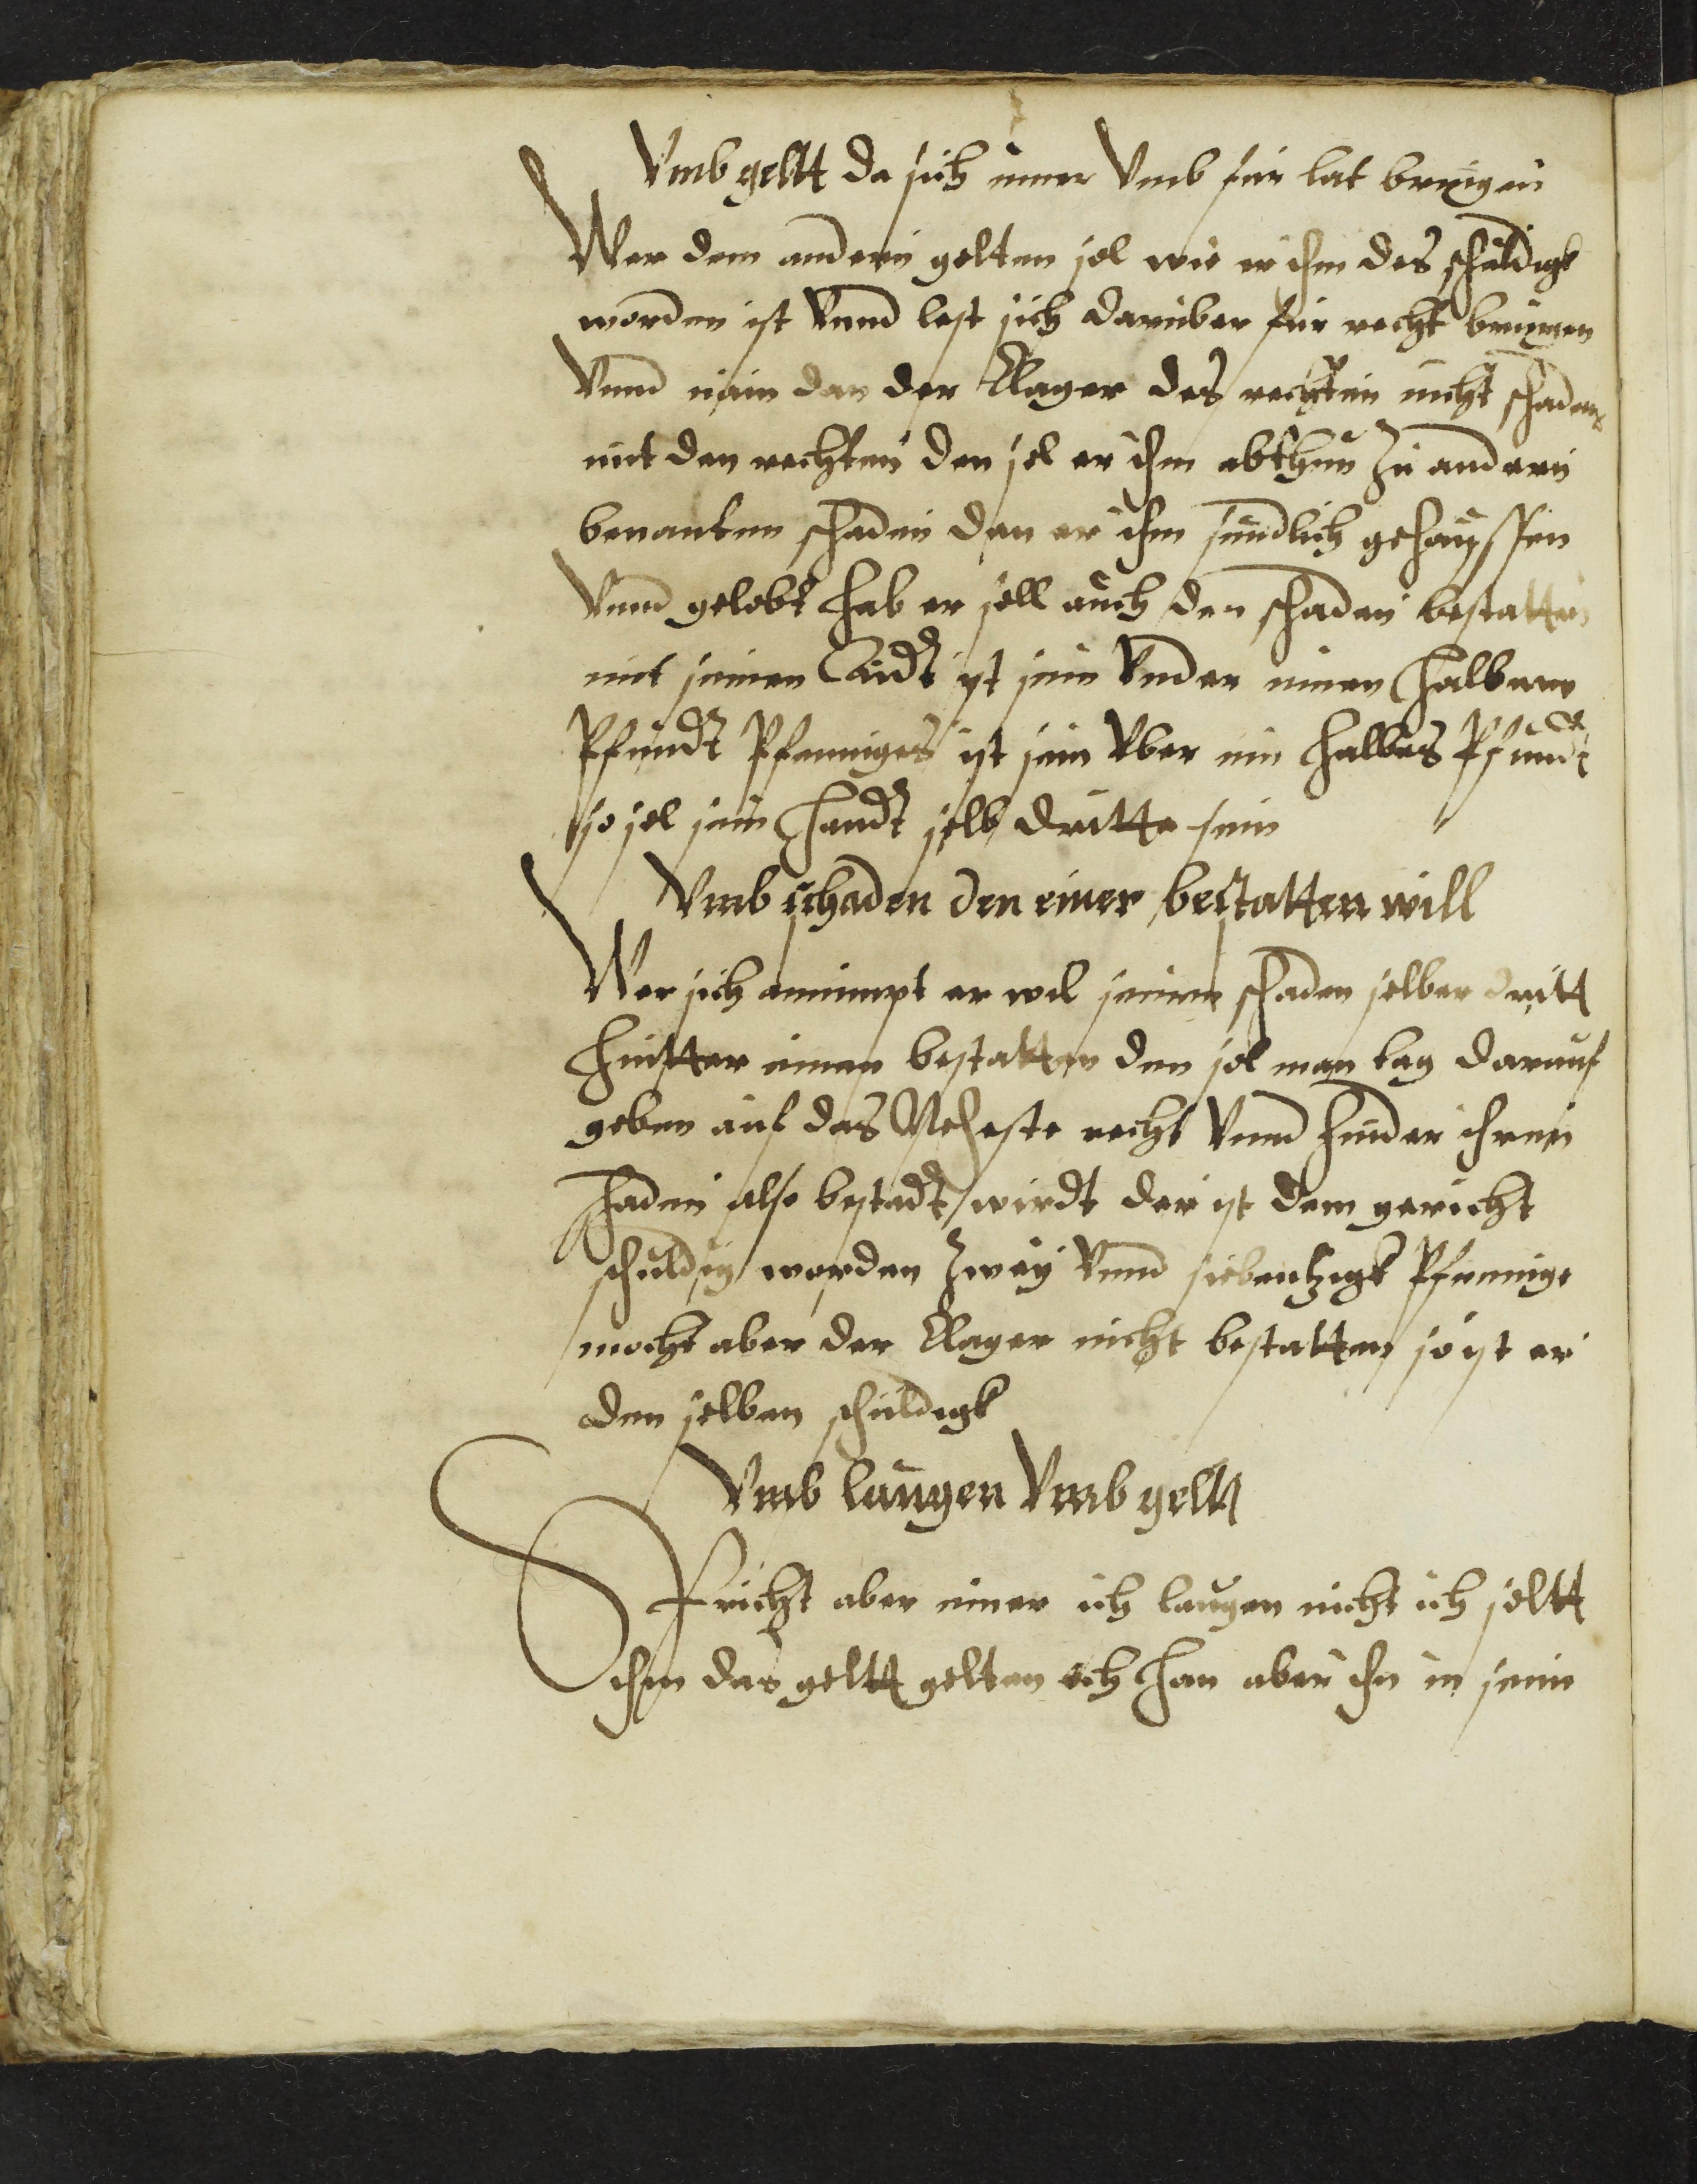 Vmb geltt da sich einer Vmb fur lat bringen
Wer dem andern gelten sol wie er ihm des schuldigk
worden ist Vnnd lest sich daruber fur recht bringen
Vnnd nain dan der Klager des rechten nicht schadens
mit den rechten den sol er ihm abthun Zu andern
benanten schaden den er ihm sundlich gehayssen
Vnnd gelobt hab er soll auch den schaden bestatten
mit seinen Aidt ist sein Vnder einen halben
Pfundt Pfenniges ist sein Vber ein halbes Pfundt
so sol sein handt selb dritte sein
Vmb schaden den einer bestatten will
Wer sich annimpt er wil seinen schaden selber dritt
hintter einen bestatten dem sol man tag darauf
geben auf das Neheste recht Vnnd hinder ihenen
schaden also bestadt wirdt der ist dem gericht
schuldig worden Zway Vnnd siebentzigk Pfennige
mocht aber der Klager nicht bestatten so ist er
den selben schuldigk
Vmb laugen Vmb geltt
Spricht aber einer ich laugen nicht ich soltt
ihm das geltt gelten ich han aber ihn in sein